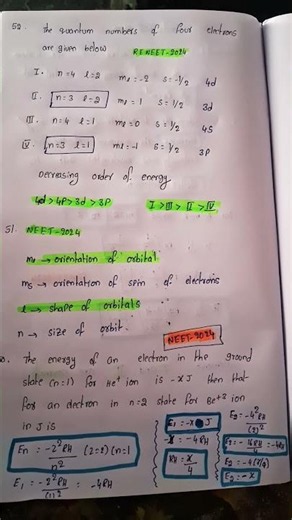 52. The quantum numbers of four electrons
are given below RENEET-2024
I. n=4 l=2 ml=-2 s=-1/2 4d
II. n=3 l=2 ml=1 s=1/2 3d
III. n=4 l=1 ml=0 s=1/2 4S
IV. n=3 l=1 ml=-1 s=1/2 3P
Decreasing order of energy
4d>4P>3d>3P I>III>II>IV
51. NEET-2024
ml → orientation of orbital
ms → orientation of spin of electrons
l → shape of orbitals
n → size of orbit. NEET-2024
The energy of an electron in the ground
state (n=1) for He+ ion is -x J then that
for an electron in n=2 state for Be+3 ion
in J is
En = -2²RH/n² (z=2)(n=1
E1 = -2²RH/(1)² = -4RH
E1 = -x J
-x = -4RH
RH = x/4
E2 = -4²RH/(2)²
E2 = -16RH/4 = -4RH
E2 = -4(x/4)
E2 = -x